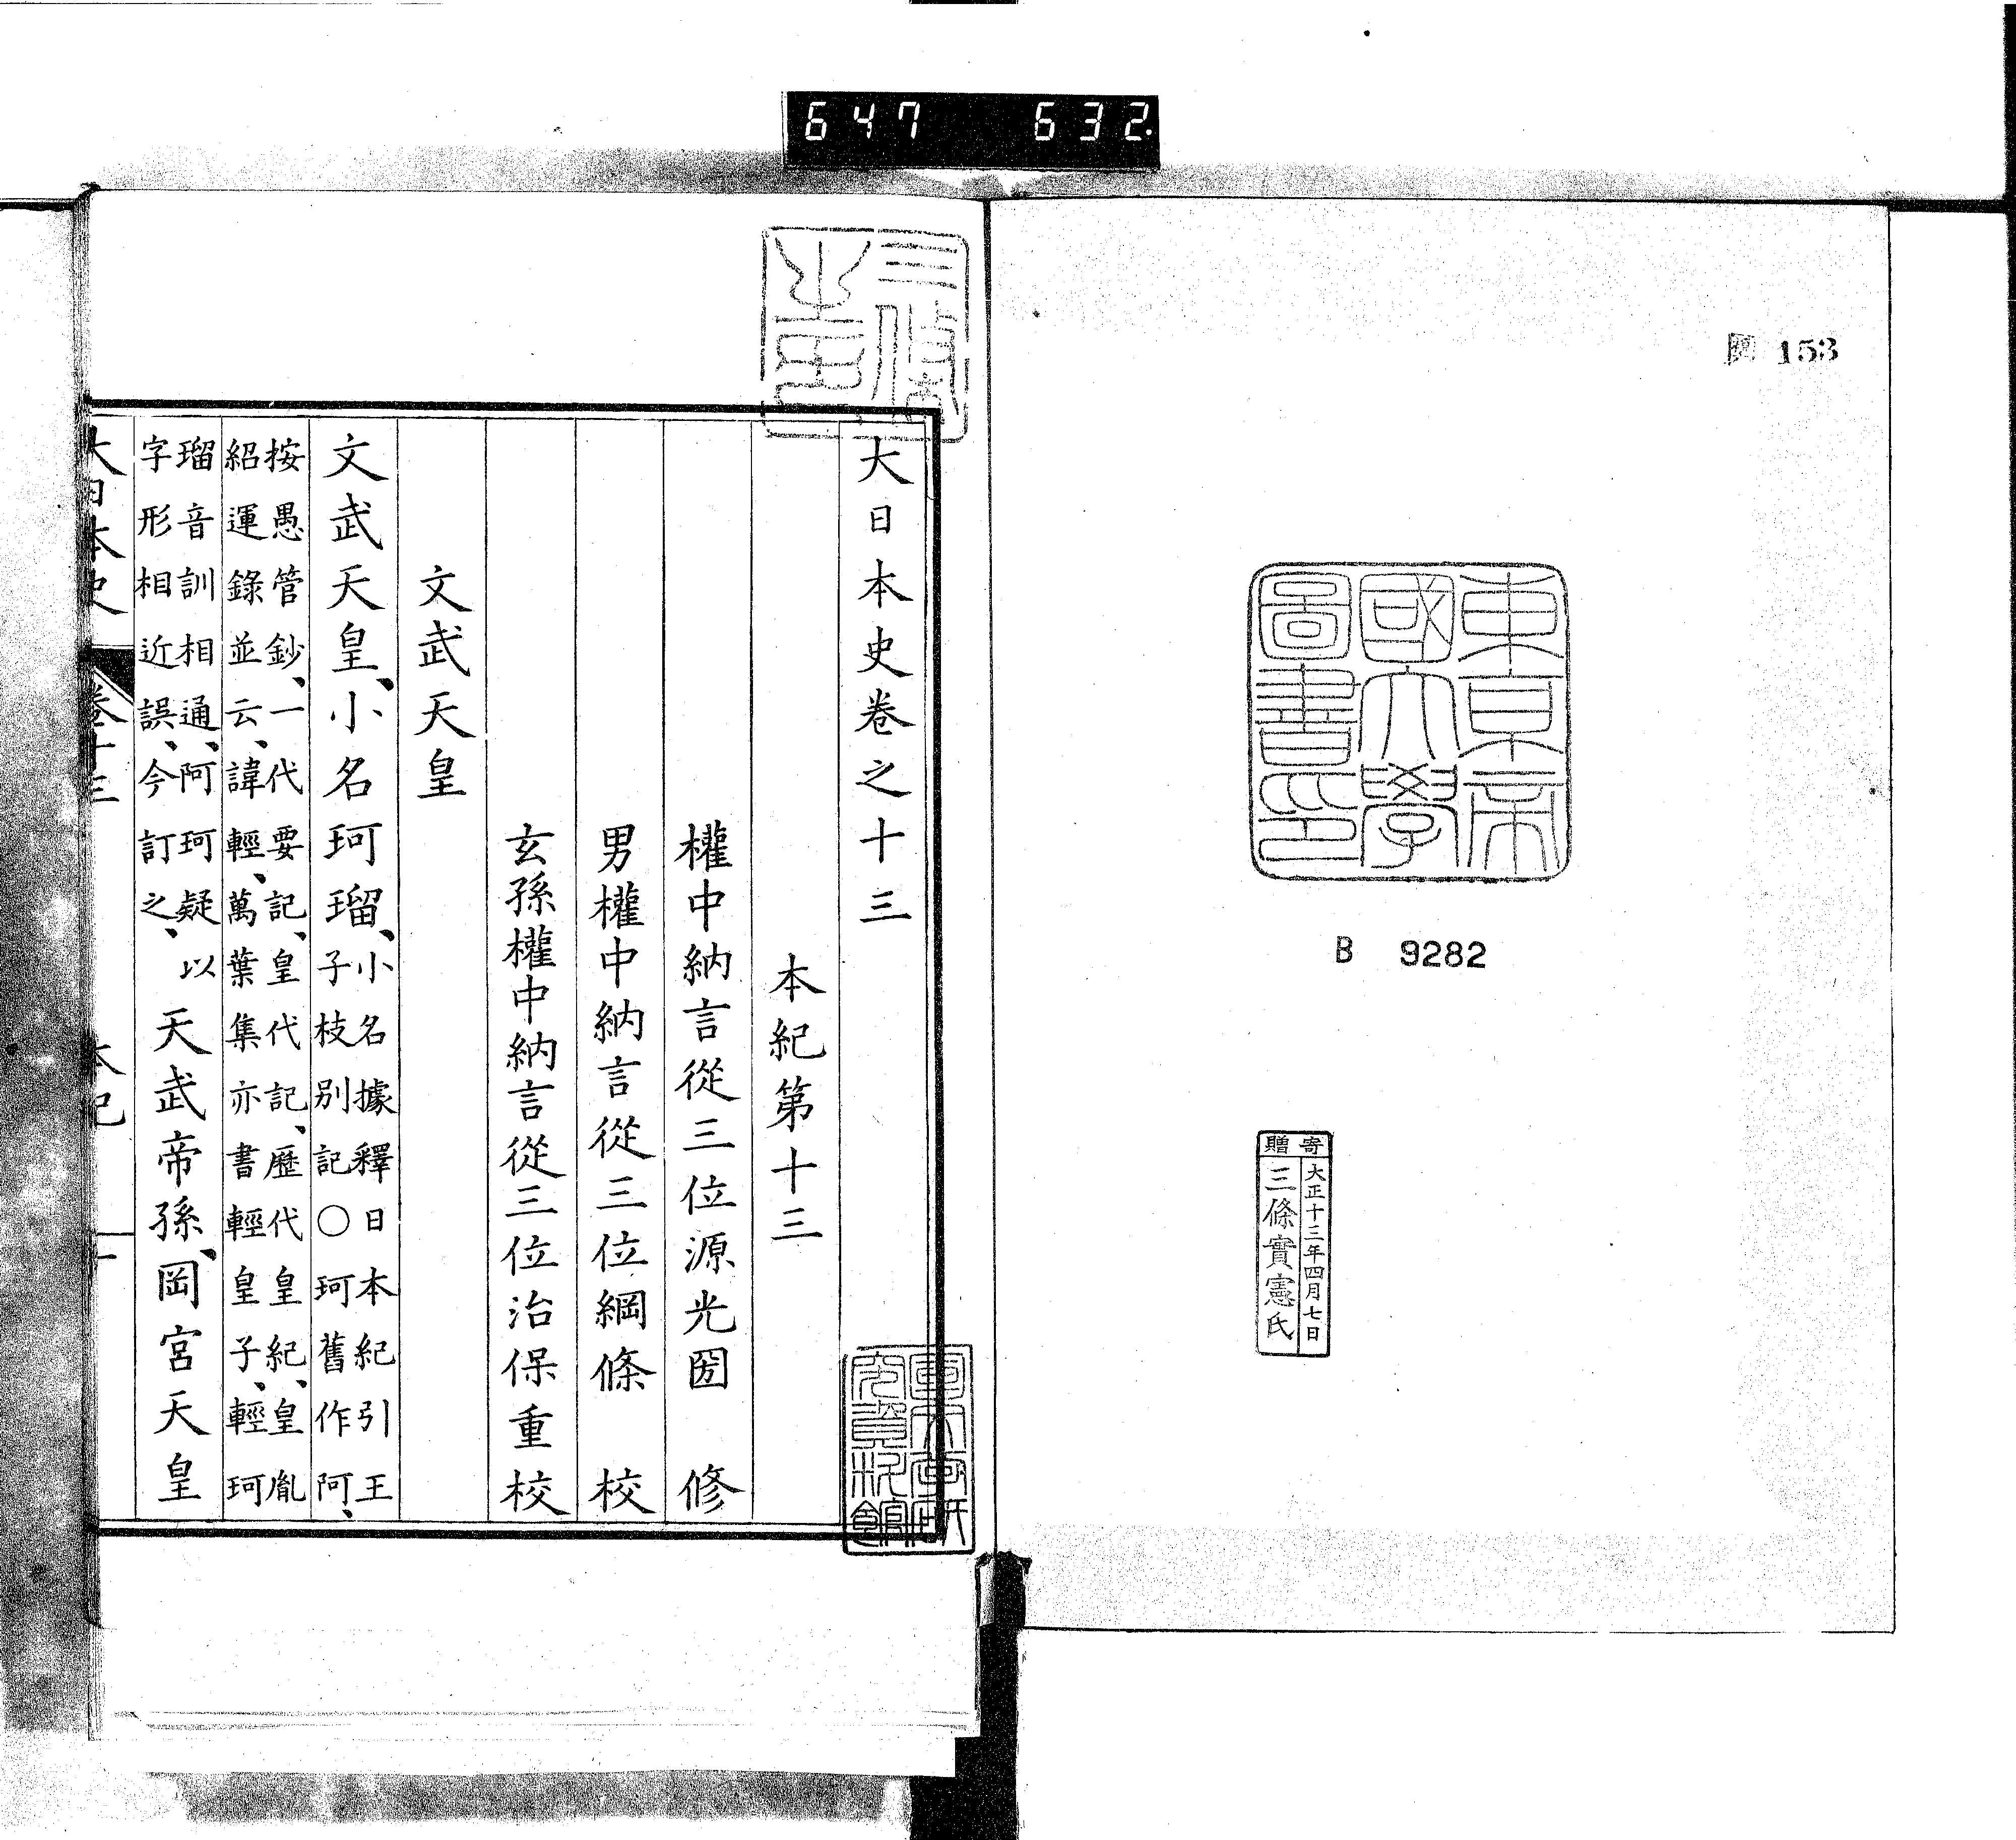 647 632.
圖 153
東京帝
國大學
圖書印
B 9282
寄贈
大正十三年四月七日
三條實憲氏
大日本史卷之十三
本紀第十三
權中納言從三位源光圀 修
男權中納言從三位綱條 校
玄孫權中納言從三位治保重校
文武天皇
文武天皇、小名珂瑠、小名據釋日本紀引王
子枝別記○珂舊作阿、
按愚管鈔、一代要記、皇代記、歷代皇紀、皇胤
紹運錄並云、諱輕、萬葉集亦書輕皇子、輕珂
瑠音訓相通、阿珂疑以
字形相近誤、今訂之、
天武帝孫、岡宮天皇
大日本史 卷十三 本紀 一